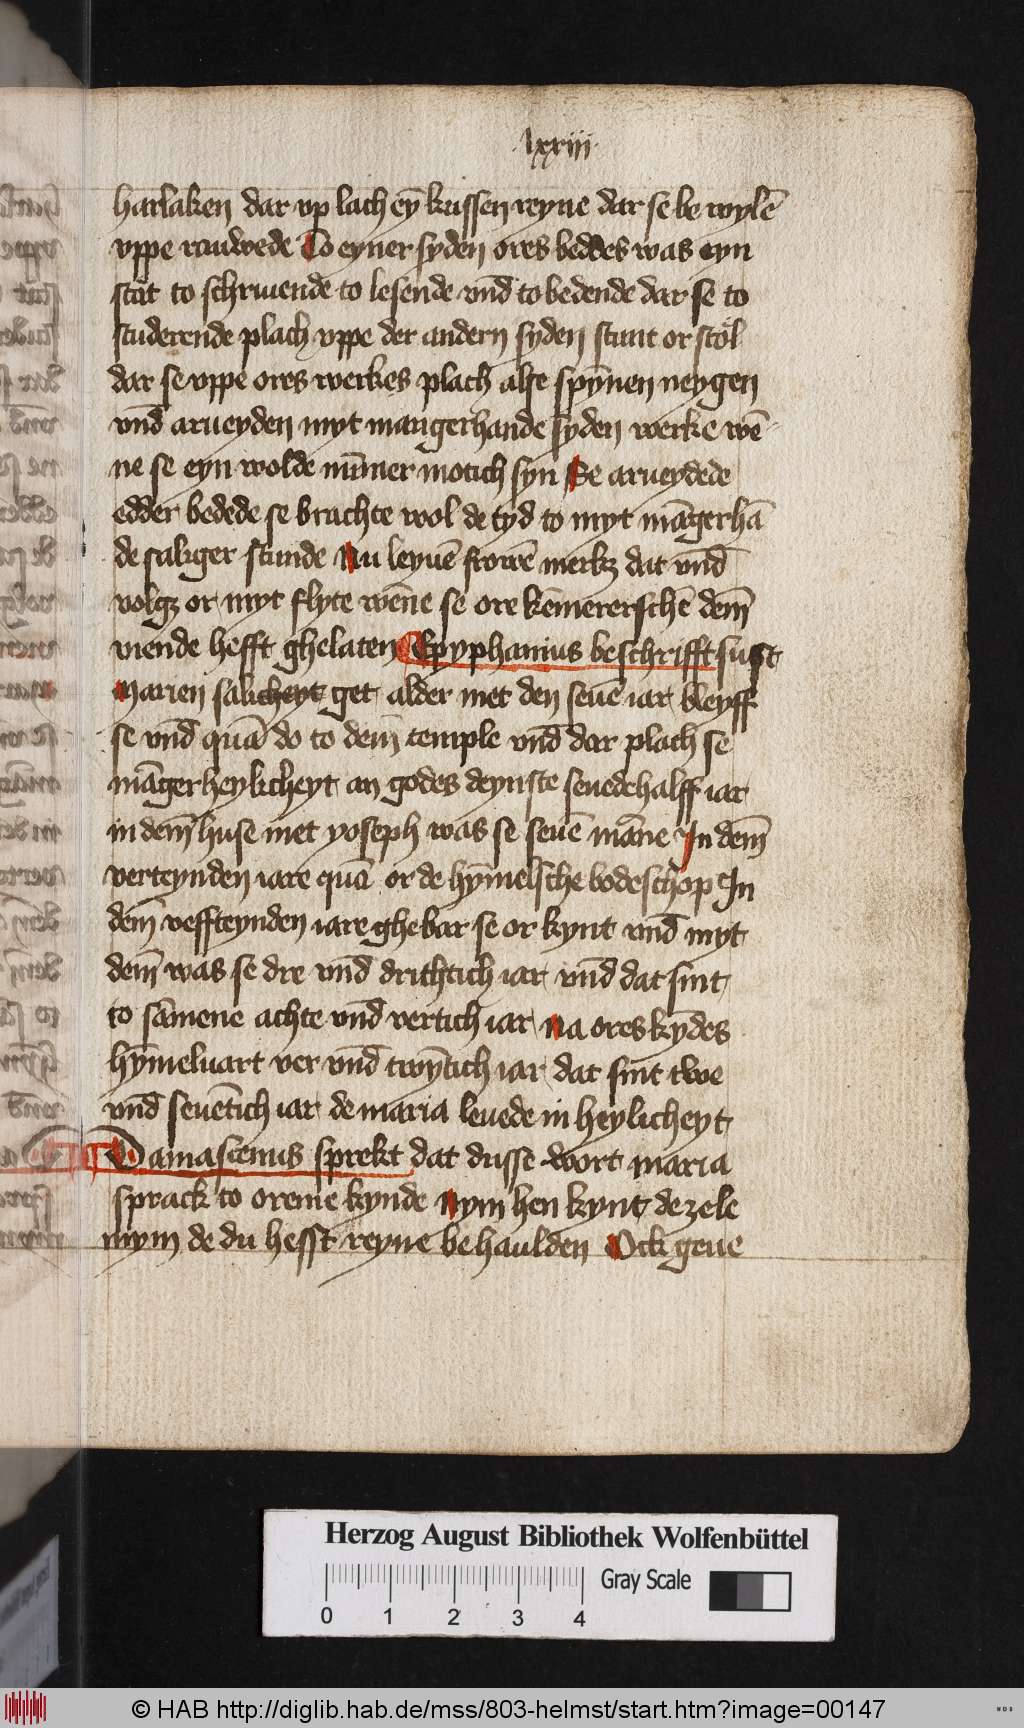 lxxiii
harlaken dar vp lach ey̅ kussen reyne dar se be wyle̅
vppe rauwede To eyner syden ores beddes was eyn
stat to schriuende to lesende vn̅d to bedende dar se to
studerende plach vppe der andern syden stunt or stol
dar se vppe ores werkes plach alse spy̅nen neygen
vn̅d arueyden myt mangerhande syden werke we̅
ne se eyn wolde nu̅mer motich syn Se arueydede
edder bedede se brachte wol de tyd to myt ma̅gerha̅
de saliger stunde Nu leyue̅ frowe̅ merkꝫ dat vn̅d
volgꝫ or myt flyte we̅ne se ore kemerersche̅ dem̅
viende hefft ghelaten Epyphanius beschrifft sust
Marien salicheyt get alder met den seue̅ iar bleyff
se vn̅d qua̅ do to dem̅ temple vn̅d dar plach se
ma̅ger heylicheyt an godes deynste seuedehalff iar
in dem̅ huse met yoseph was se seue̅ ma̅ne In dem̅
verteynden iare qua̅ or de hy̅melsche bodeschop In
dem̅ veffteynden iare ghebar se or kynt vn̅d myt
dem̅ was se dre vn̅d drithtich iar vn̅d dat sint
to sa̅mene achte vn̅d vertich iar na ores kydes
hy̅meluart ver vn̅d twy̅tich iar dat sint twe
vn̅d seue̅tich iar de maria leuede in heylicheyt
Damascenus sprekt dat dusse wort maria
sprack to oreme kynde Nym hen kynt de zele
mym de du hefft reyne behaulden Ock geue
Herzog August Bibliothek Wolfenbüttel
Gray Scale
0 1 2 3 4
© HAB http://diglib.hab.de/mss/803-helmst/start.htm?image=00147